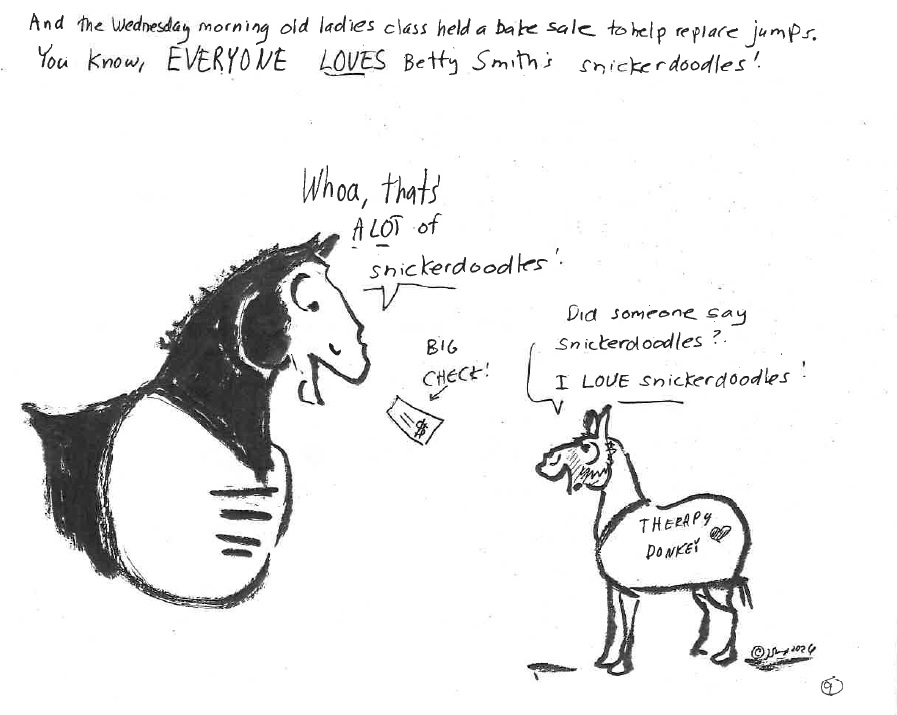 And the Wednesday morning old ladies class held a bake sale to help replace jumps.
You know, EVERYONE LOVES Betty Smith's snickerdoodles!
Whoa, that's
A LOT of
snickerdoodles!
BIG
CHECK!
$
Did someone say
snickerdoodles?
I LOVE snickerdoodles!
THERAPY
DONKEY
© 2024
9